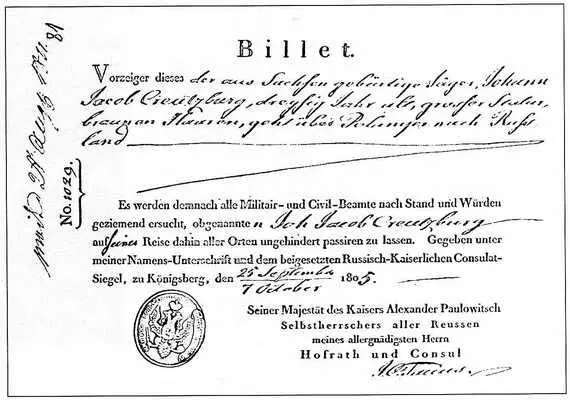 Billet.
Vorzeiger dieses der aus Sachsen gebürtige Jäger, Johann
Jacob Creutzburg, dreyssig Jahr alt, grosser Statur,
braunen Haaren, geht über Polangen nach Russ
land
No. 1029.
Es werden demnach alle Militair- und Civil-Beamte nach Stand und Würden
geziemend ersucht, obgenannten Joh Jacob Creutzburg
auf seiner Reise dahin aller Orten ungehindert passiren zu lassen. Gegeben unter
meiner Namens-Unterschrift und dem beigesetzten Russisch-Kaiserlichen Consulat-
Siegel, zu Königsberg, den 25 September 1805.
7 October
Seiner Majestät des Kaisers Alexander Paulowitsch
Selbstherrschers aller Reussen
meines allergnädigsten Herrn
Hofrath und Consul